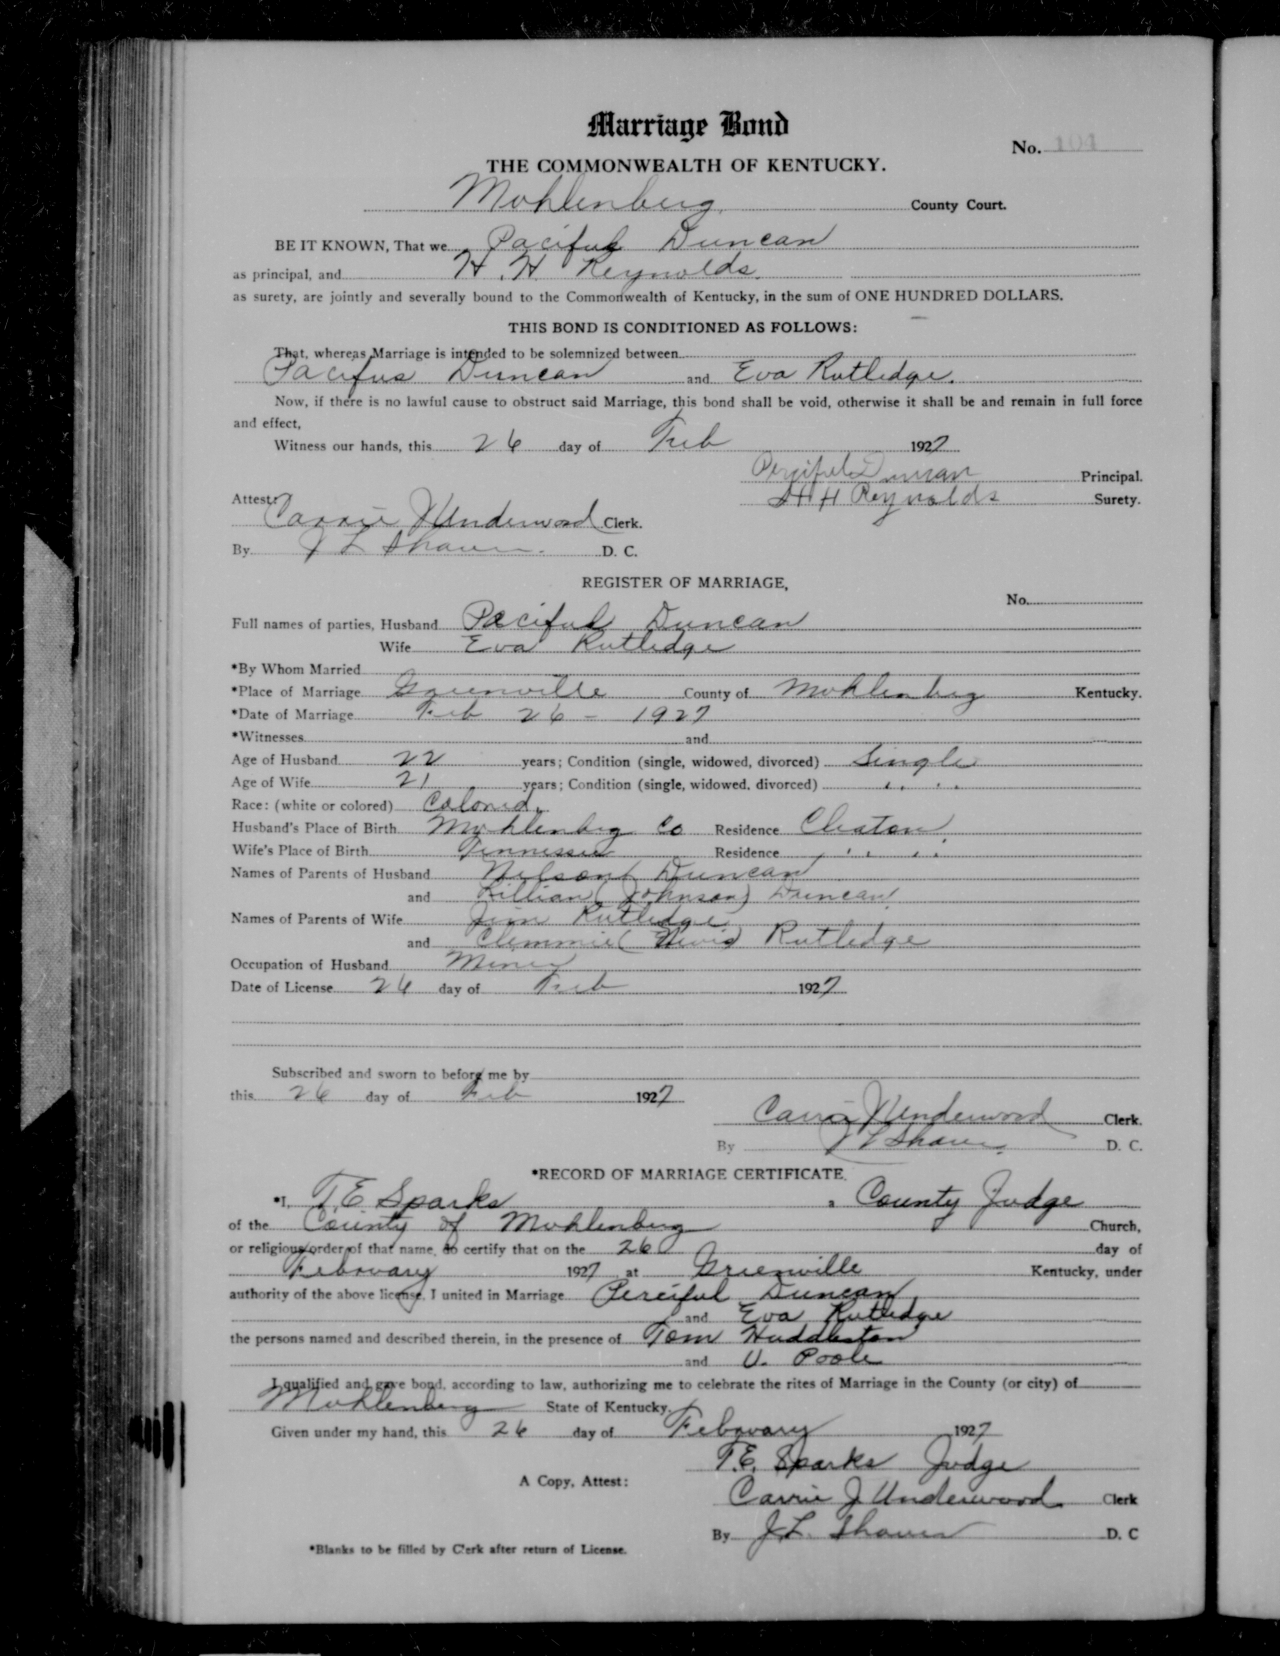 Marriage Bond
No. 104
THE COMMONWEALTH OF KENTUCKY.
Mohlenberg County Court.
BE IT KNOWN, That we Paciful Duncan
as principal, and H. H. Reynolds.
as surety, are jointly and severally bound to the Commonwealth of Kentucky, in the sum of ONE HUNDRED DOLLARS.
THIS BOND IS CONDITIONED AS FOLLOWS:
That, whereas Marriage is intended to be solemnized between
Pacifus Duncan and Eva Rutledge.
Now, if there is no lawful cause to obstruct said Marriage, this bond shall be void, otherwise it shall be and remain in full force
and effect,
Witness our hands, this 26 day of Feb 1927
Perciful Duncan Principal.
H H Reynolds Surety.
Attest:
Carrie J Underwood Clerk.
By J L Shaver. D. C.
REGISTER OF MARRIAGE,
No.
Full names of parties, Husband Paciful Duncan
Wife Eva Rutledge
*By Whom Married
*Place of Marriage Greenville County of Mohlenbeg Kentucky.
*Date of Marriage Feb 26 - 1927
*Witnesses and
Age of Husband 22 years; Condition (single, widowed, divorced) Single
Age of Wife 21 years; Condition (single, widowed, divorced) " "
Race: (white or colored) Colored.
Husband's Place of Birth Mohlenbeg Co Residence Cleaton
Wife's Place of Birth Tennessee Residence " "
Names of Parents of Husband Nelson Duncan
and Lillian (Johnson) Duncan
Names of Parents of Wife Jim Rutledge
and Clemmie ( ) Rutledge
Occupation of Husband Miner
Date of License 26 day of Feb 1927
Subscribed and sworn to before me by
this 26 day of Feb 1927
Carrie J Underwood Clerk.
By J L Shaver. D. C.
*RECORD OF MARRIAGE CERTIFICATE.
*I, T. E. Sparks a County Judge
of the County of Mohlenberg Church,
or religious order of that name, do certify that on the 26 day of
Febrary 1927 at Greenville Kentucky, under
authority of the above license, I united in Marriage Perciful Duncan
and Eva Rutledge
the persons named and described therein, in the presence of Tom Huddleston
and U. Poole
I qualified and gave bond, according to law, authorizing me to celebrate the rites of Marriage in the County (or city) of
Mohlenberg State of Kentucky.
Given under my hand, this 26 day of Febrary 1927
T. E. Sparks Judge
A Copy, Attest:
Carrie J Underwood Clerk
By J L. Shaver D. C
*Blanks to be filled by Clerk after return of License.